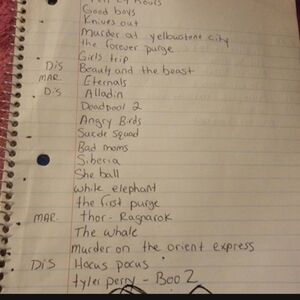 24 hours
Good boys
Knives out
Murder at yellowstone city
the forever purge
Girls trip
Dis Beauty and the beast
MAR. Eternals
Dis Alladin
Deadpool 2
Angry Birds
Suicde squad
Bad moms
Siberia
She ball
white elephant
the first purge
MAR. Thor - Ragnarok
The whale
Murder on the orient express
Dis Hocus pocus
tyler perry - Boo 2